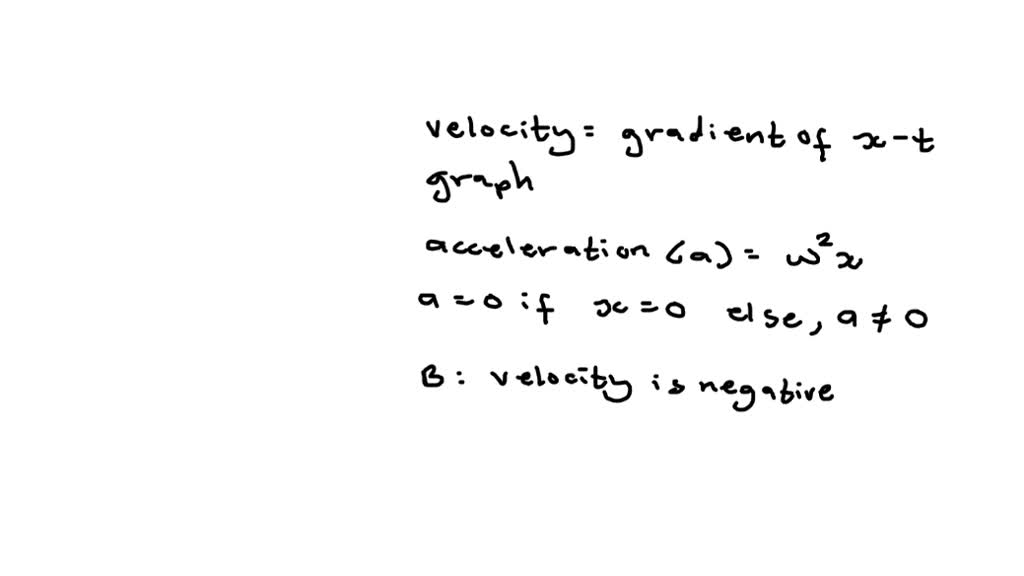 velocity = gradient of x-t
graph
acceleration (a) = ω²x
a = 0 if x = 0 else, a ≠ 0
B: velocity is negative